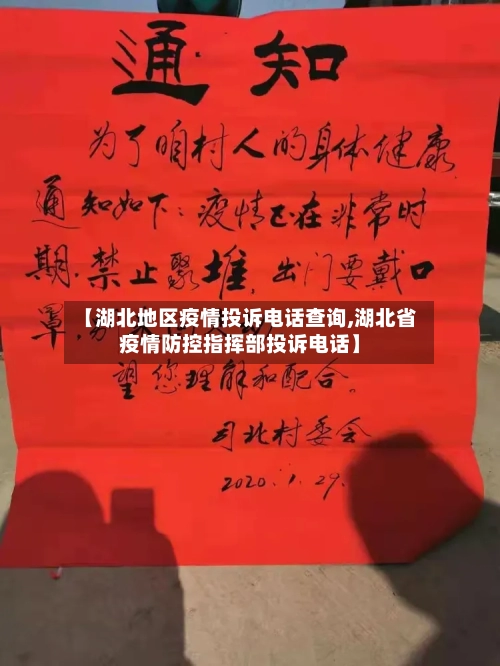 通知
为了咱村人的身体健康
通知如下：疫情正在非常时
期.禁止聚堆，出门要戴口
罩，
【湖北地区疫情投诉电话查询,湖北省
疫情防控指挥部投诉电话】
望您理解和配合。
司北村委会
2020.1.29.